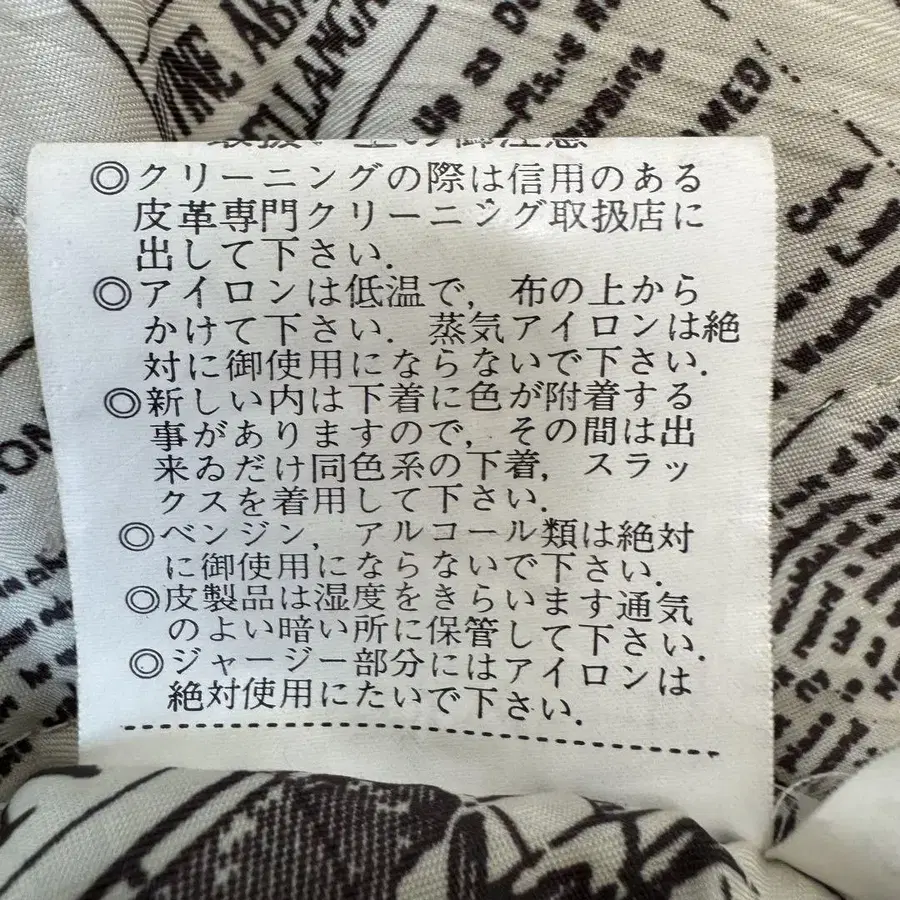 取扱い上の御注意
◎クリーニングの際は信用のある
皮革専門クリーニング取扱店に
出して下さい.
◎アイロンは低温で, 布の上から
かけて下さい. 蒸気アイロンは絶
対に御使用にならないで下さい.
◎新しい内は下着に色が附着する
事がありますので, その間は出
来ゐだけ同色系の下着, スラッ
クスを着用して下さい.
◎ベンジン, アルコール類は絶対
に御使用にならないで下さい.
◎皮製品は湿度をきらいます通気
のよい暗い所に保管して下さい.
◎ジャージー部分にはアイロンは
絶対使用にたいで下さい.
Up as
NAMED!
Card!